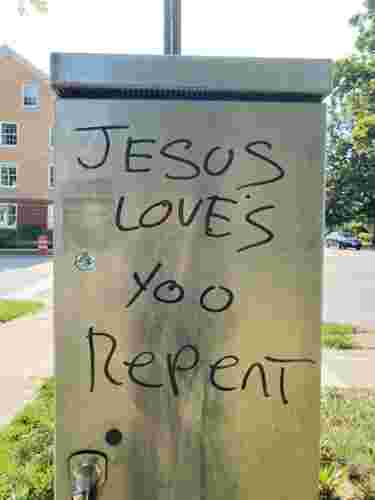 JESUS
LOVES
YOO
Repent